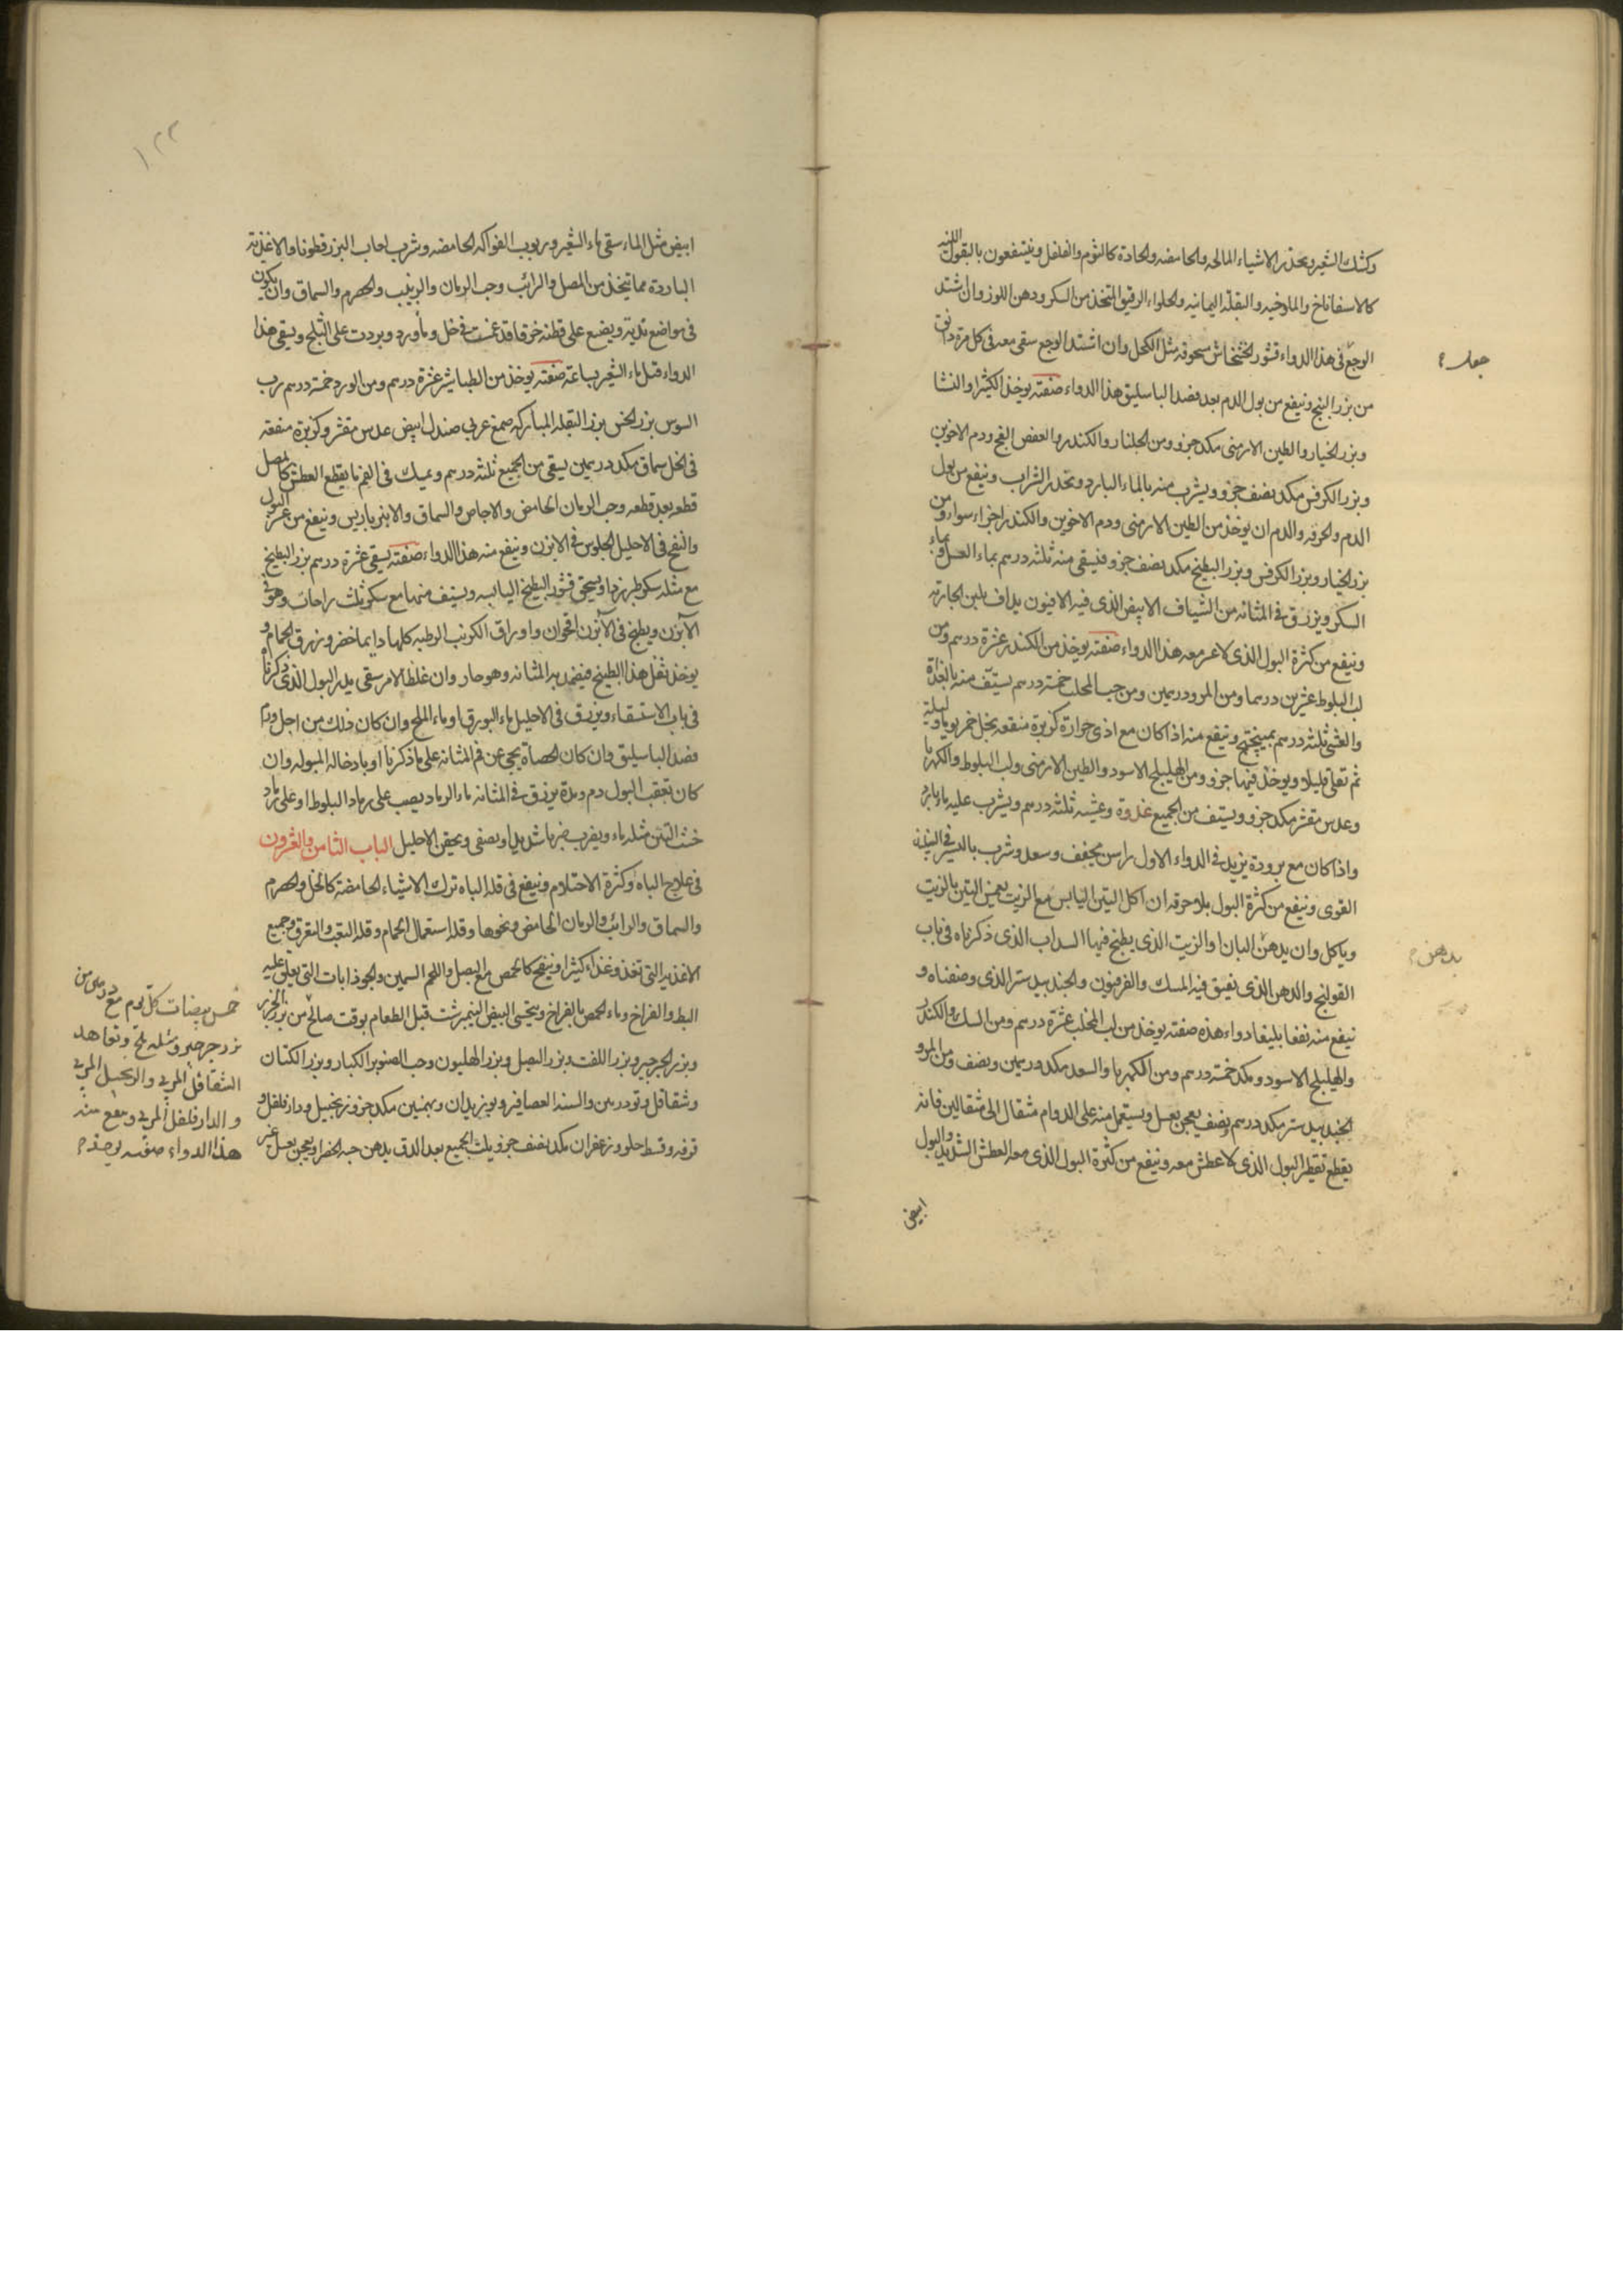 وكشك الشعير ويحذر الاشياء المالحه والحامضه والحادة كالثوم والفلفل وينتفعون بالبقول اللينه
كالاسفاناخ والملوخيه والبقلة اليمانيه والحلواء الرقيق المتخذ من السكر ودهن اللوز وان اشتد
الوجع في هذا الدواء قشور الخشخاش مسحوقه مثل الكحل وان اشتد الوجع سقى معه في كل مرة دانق
جعل
من بزر البنج وينفع من بول الدم بعد فصد الباسليق هذا الدواء صنفته يوخذ الكثيرا والنشا
وبزر الخيار والطين الارمنى مكد جزو ومن الجلنار والكندر والعفص الفج ودم الاخوين
وبزر الكرفس مكد نصف جزو ويشرب منه بالماء البارد ويحذر الشراب وينفع من بول
الدم والحرقه والدم ان يوخذ من الطين الارمنى ودم الاخوين والكندر اجزاء سواء ومن
بزر الخيار وبزر الكرفس وبزر البطيخ مكد نصف جزو فيسقى منه ثلثه درهم بماء العسل وبماء
السكر ويزرق في المثانه من الشياف الابيض الذى فيه الافيون يداف بلبن الجاريه
وينفع من كثرة البول الذى لا معه هذا الدواء صنفته يوخذ من الكندر عشرة درهم ومن
لب البلوط عشرين درهما ومن المر درهمين ومن حب المحلب خمسة درهم يستف منه بالغداة
والعشى ثلثه درهم بميبختج وينفع منه اذا كان مع اذى حرارة كزبرة منقعه بخل خمر يوما وليلة
ثم تقلى قليلا ويوخذ فيها جزو ومن الهليلج الاسود والطين الارمنى ولب البلوط والكهربا
وعدس مقشر مكد جزو ويستف من الجميع غدوة وعشيه ثلثه درهم ويشرب عليه ماء بارد
واذا كان مع برودة يزيد في الدواء الاول راسن مجفف وسعد وشرب بالعشر في النبيذ
القوى وينفع من كثرة البول بلا حرقه ان اكل التين اليابس مع الزيت يغمس التين بالزيت
وياكل وان يدهن البان او الزيت الذى يطبخ فيها السداب الذى ذكرناه في باب
بدهن
القولنج والدهن الذى يفتق فيه المسك والفرفيون والجندبيدستر الذى وصفناه و
ينفع منه نفعا بليغا دواء هذه صنفته يوخذ من لب المحلب عشرة درهم ومن السك والكندر
والهليلج الاسود ومكد خمسة درهم ومن الكهربا والسعد مكد درهمين ونصف ومن المر و
الجندبيدستر مكد درهم ونصف يعجن بعسل ويستعمل منه على الدوام مثقال الى مثقالين فانه
يقطع تقطير البول الذى لا عطش معه وينفع من كثرة البول الذى معه العطش الشديد والبول
ابيض
١٢٢
ابيض مثل الماء سقى ماء الشعير وربوب الفواكه الحامضه وشرب لعاب البزرقطونا والاغذيه
الباردة مما يتخذ من المصل والرائب وحب الرمان والزبيب والحصرم والسماق وان يكون
في مواضع نديه ويضع على قطنه خرقا قد غمست في خل وماورد وبردت على الثلج ويسقى هذا
الدواء قبل ماء الشعير بساعة صنفته يوخذ من الطباشير عشرة درهم ومن الورد خمسة درهم رب
السوس بزر الخس بزر البقلة المباركه صمغ عربى صندل ابيض عدس مقشر وكزبرة منقعه
في الخل سماق مكد درهمين يسقى من الجميع ثلثه درهم ويمسك في الفم ما يقطع العطش كالمصل
قطعه بعد قطعه وحب الرمان الحامض والاجاص والسماق والانبرباريس وينفع من عسر البول
والنفخ في الاحليل الجلوس في الابزن وينفع منه هذا الدواء صنفته يسقى عشرة درهم بزر البطيخ
مع مثله سكر طبرزد او يسحق قشور البطيخ اليابسه ويستف منها مع سكر ثلث راحات وهو في
الآبزن ويطبخ في الآبزن اقحوان واوراق الكرنب الرطبه كلها دايما خضر وزرق الحمام و
يوخذ ثفل هذا البطيخ فيضمد به المثانه وهو حار وان غلظ الامر سقى مدر البول الذى ذكرناه
في باب الاستسقاء ويزرق في الاحليل ماء البورق او ماء الملح وان كان ذلك من اجل ورم
فصد الباسليق وان كان الحصاة يجى عن فم المثانه على ما ذكرنا او بادخاله المبوله وان
كان تعقب البول دم ومدة يزرق في المثانه ماء الرماد يصب على رماد البلوط او على رماد
خشب التين مثله ماء ويضرب ضربا شديدا ويصفى ويحقن الاحليل الباب الثامن والعشرون
في علاج الباه وكثرة الاحتلام وينفع في قلة الباه ترك الاشياء الحامضة كالخل والحصرم
والسماق والرائب والرمان الحامض ونحوها وقلة استعمال الحمام وقلة التعب والتعرق وجميع
الاغذيه التى تغذو غذاء كثيرا وينفخ كالحمص مع البصل واللحم السمين والجوذابات التى يعلى عليه
البط والفراخ وماء الحمص بالفراخ ويتحسى البيض النيمرشت قبل الطعام بوقت صالح من بزر الجزر
وبزر الجرجير وبزر اللفت وبزر البصل وبزر الهليون وحب الصنوبر الكبار وبزر الكتان
وشقاقل وتودرين والسنه العصافير وبوزيدان وبهمنين مكد جزو زنجبيل ودارفلفل و
قرفه وقسط حلو وزعفران مكد نصف جزو يلت الجميع بعد الدق بدهن حبة الخضرا ويعجن بعسل
خمس بيضات كل يوم مع درهمى من
بزر جرجير ومثله ملح وتعاهد
الشقاقل المربى والزنجبيل المربى
والدارفلفل المربى وينفع منه
هذا الدواء صفته يوخذ